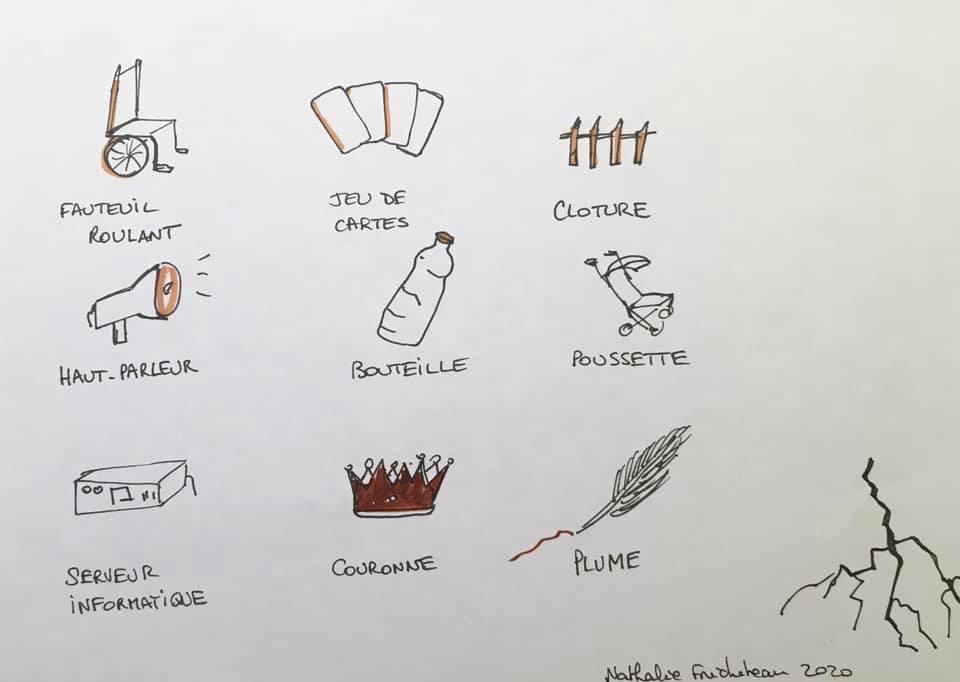 FAUTEUIL
ROULANT
JEU DE
CARTES
CLOTURE
HAUT-PARLEUR
BOUTEILLE
POUSSETTE
SERVEUR
INFORMATIQUE
COURONNE
PLUME
Nathalie 2020